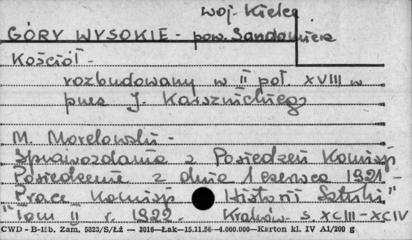 woj. Kielce
GÓRY WYSOKIE - pow. Sandomierz
Kościół -
rozbudowany w II poł. XVIII w
przez J. Karsznickiego
M. Morelowski -
Sprawozdania z Posiedzeń Komisji
Posiedzenie z dnia 1 czerwca 1921 -
"Prace Komisji Historii Sztuki"
Tom II r. 1922. Kraków s. XCIII-XCIV
CWD - B-11b. Zam. 5823/S/Łż — 2016—Łak—15.11.56—4.000.000—Karton kl. IV A1/200 g